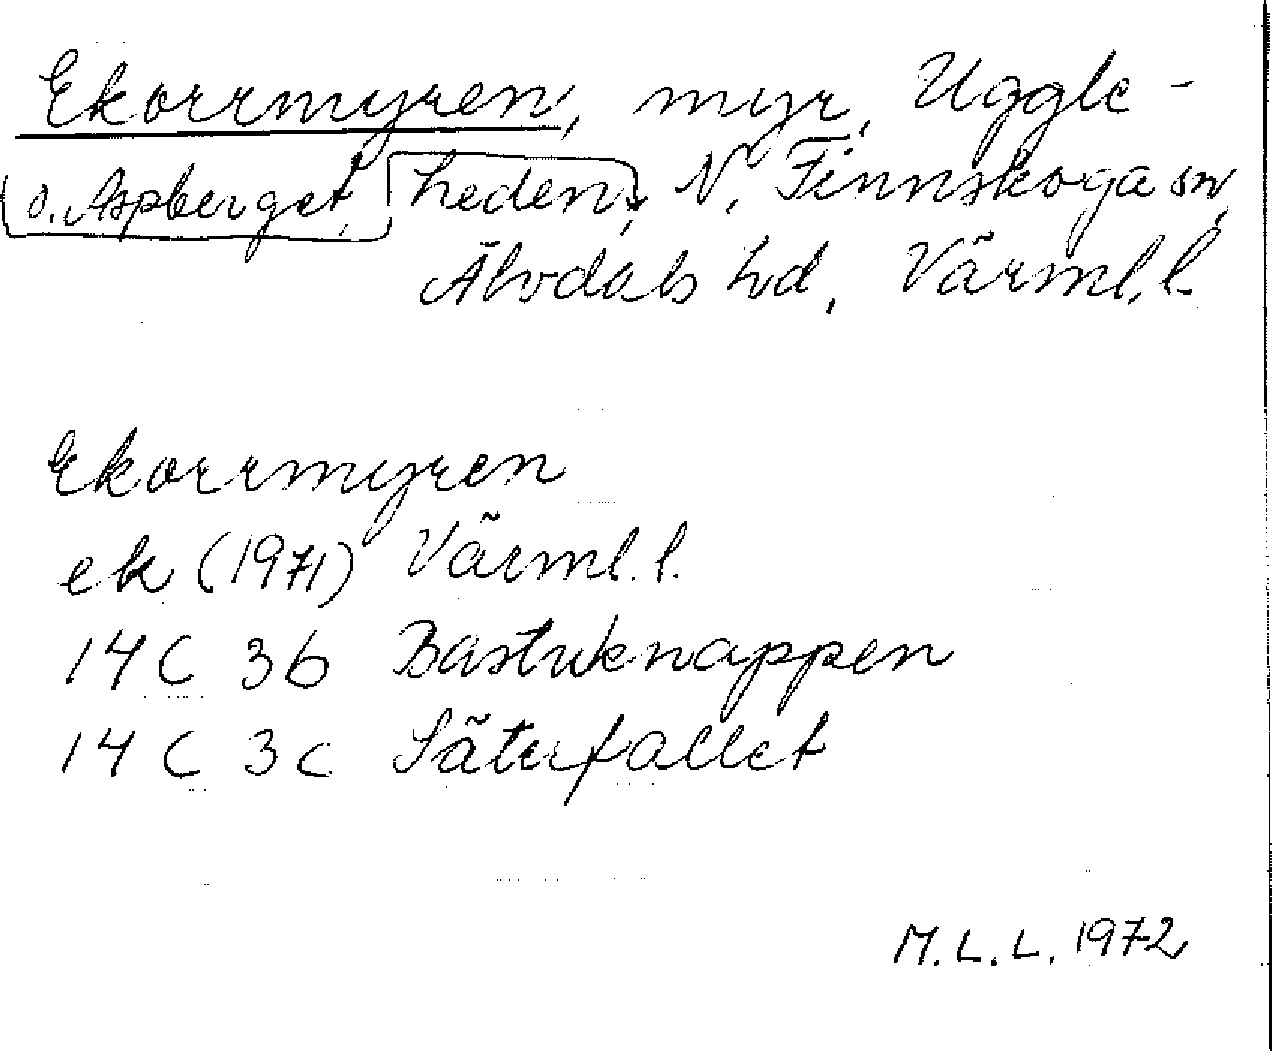 Ekorrmyren, myr, Uggle-
o. Aspberget, heden, N. Finnskoga sn,
Älvdals hd, Värml. l.
Ekorrmyren
ek (1971) Värml. l.
14 C 3b Bastuknappen
14 C 3c Säterfallet
M. L. L. 1972